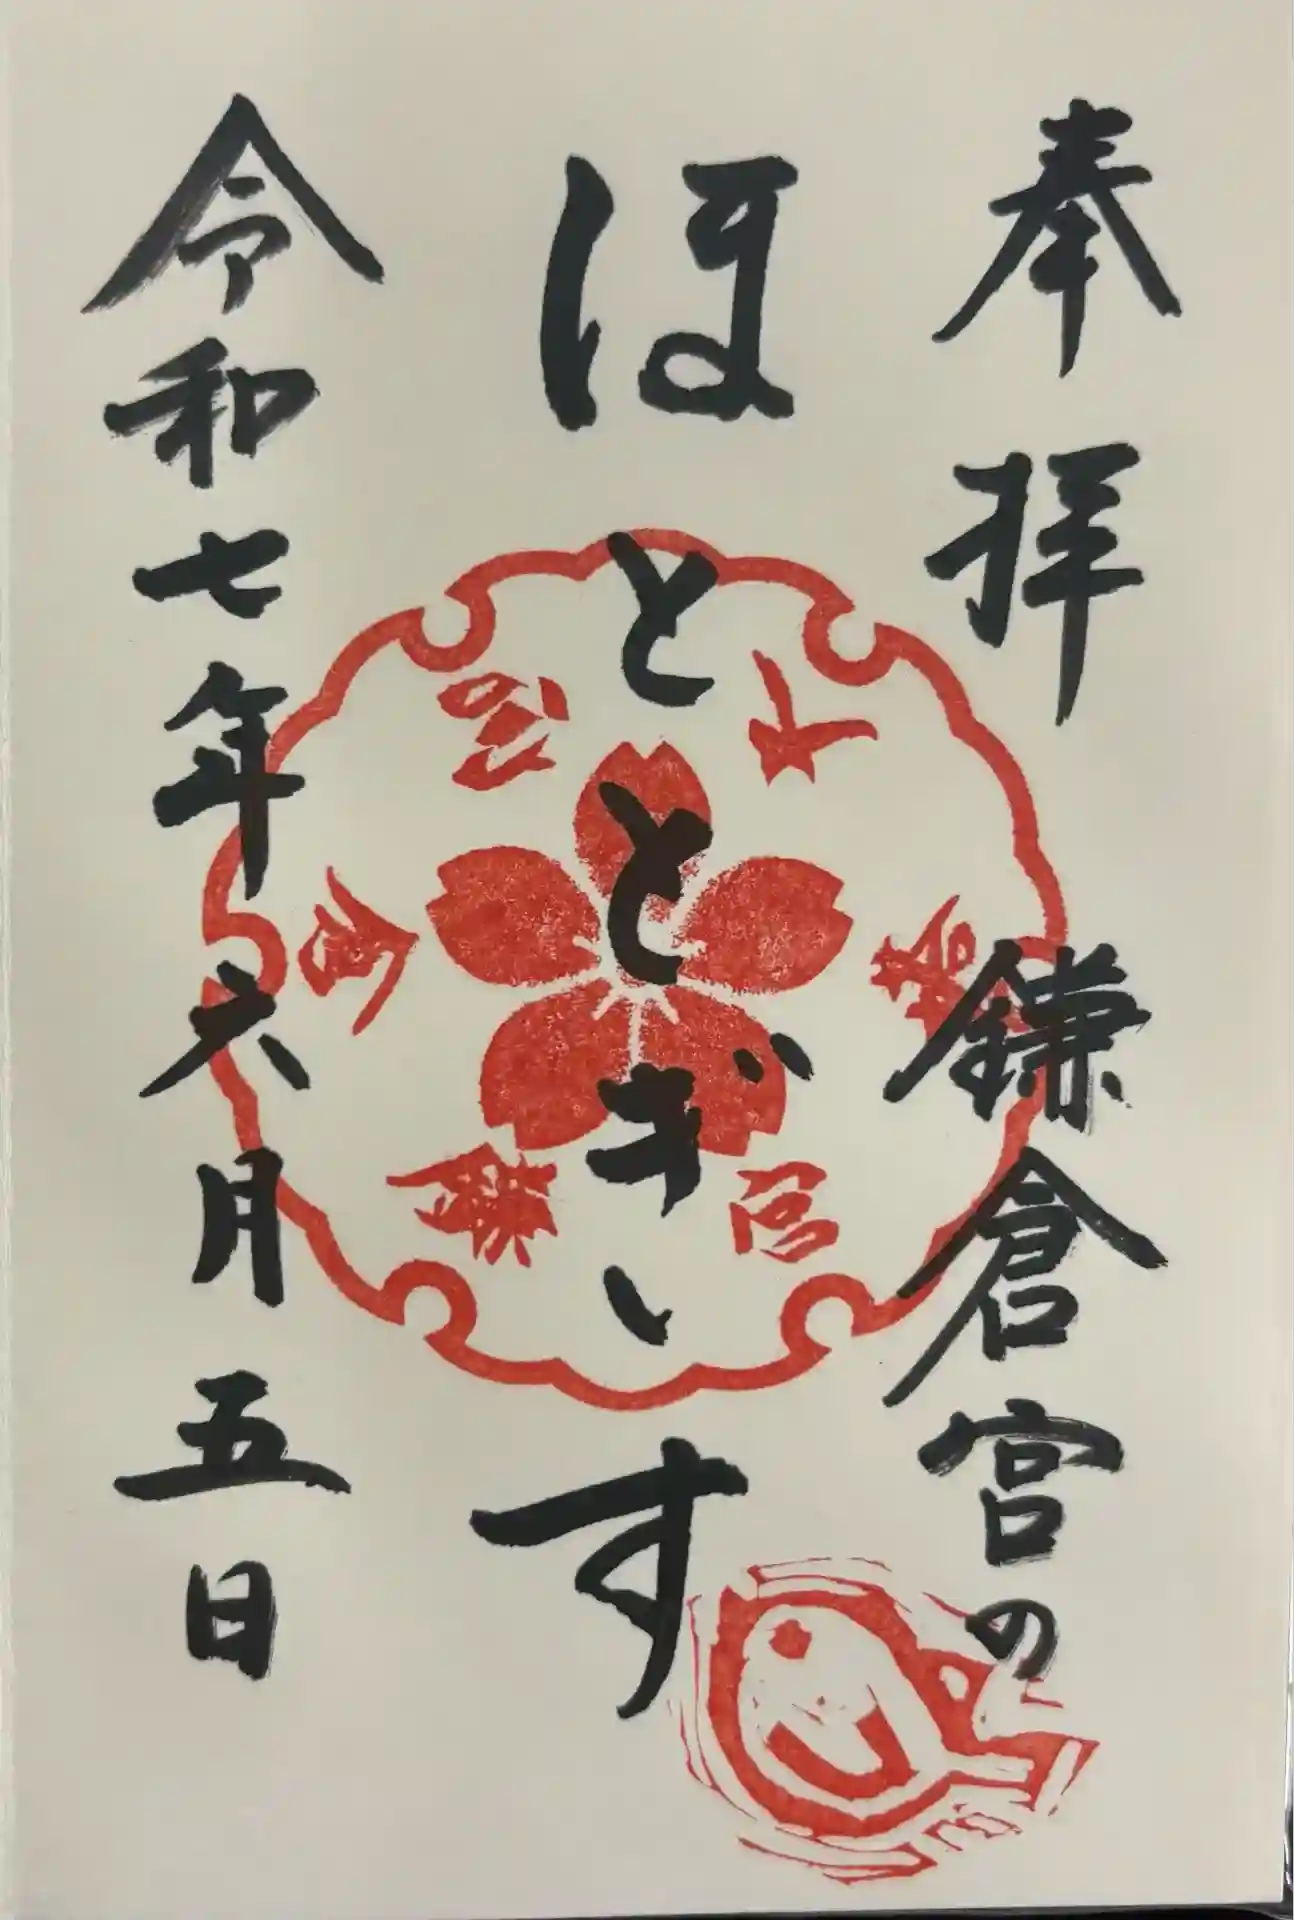 奉拝 鎌倉宮の
ほととぎす
大塔宮鎌倉宮
令和七年六月五日